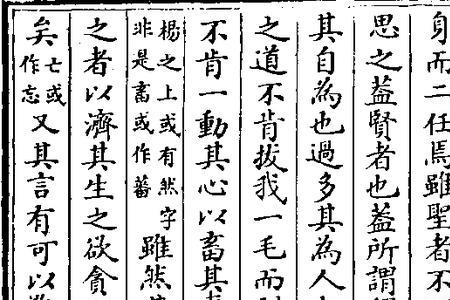 身而二任焉雖聖者不
思之蓋賢者也蓋所謂
其自為也過多其為人
之道不肯拔我一毛而
不肯一動其心以畜其
楊之上或有然字非是畜或作蓄雖然
之者以濟其生之欲貪
矣亡或作忘又其言有可以